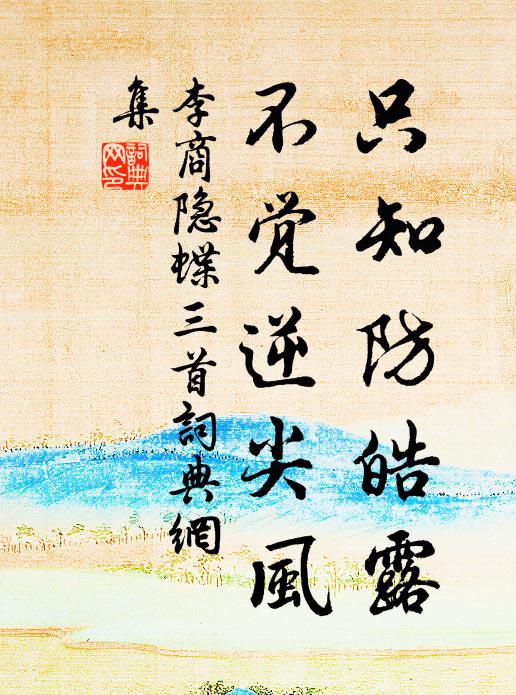 只知防皓露
不觉逆尖風
李商隐蝶三首詞典網
集
詞典
网印